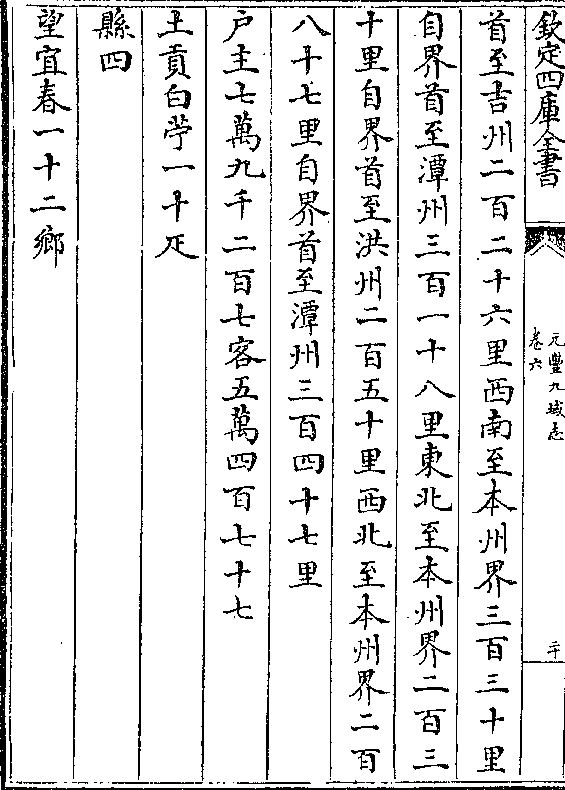 欽定四庫全書
元豐九域志
卷六
二十
首至吉州二百二十六里西南至本州界三百三十里
自界首至潭州三百一十八里東北至本州界二百三
十里自界首至洪州二百五十里西北至本州界二百
八十七里自界首至潭州三百四十七里
户主七萬九千二百七客五萬四百七十七
土貢白苧一十疋
縣四
望宜春一十二鄉